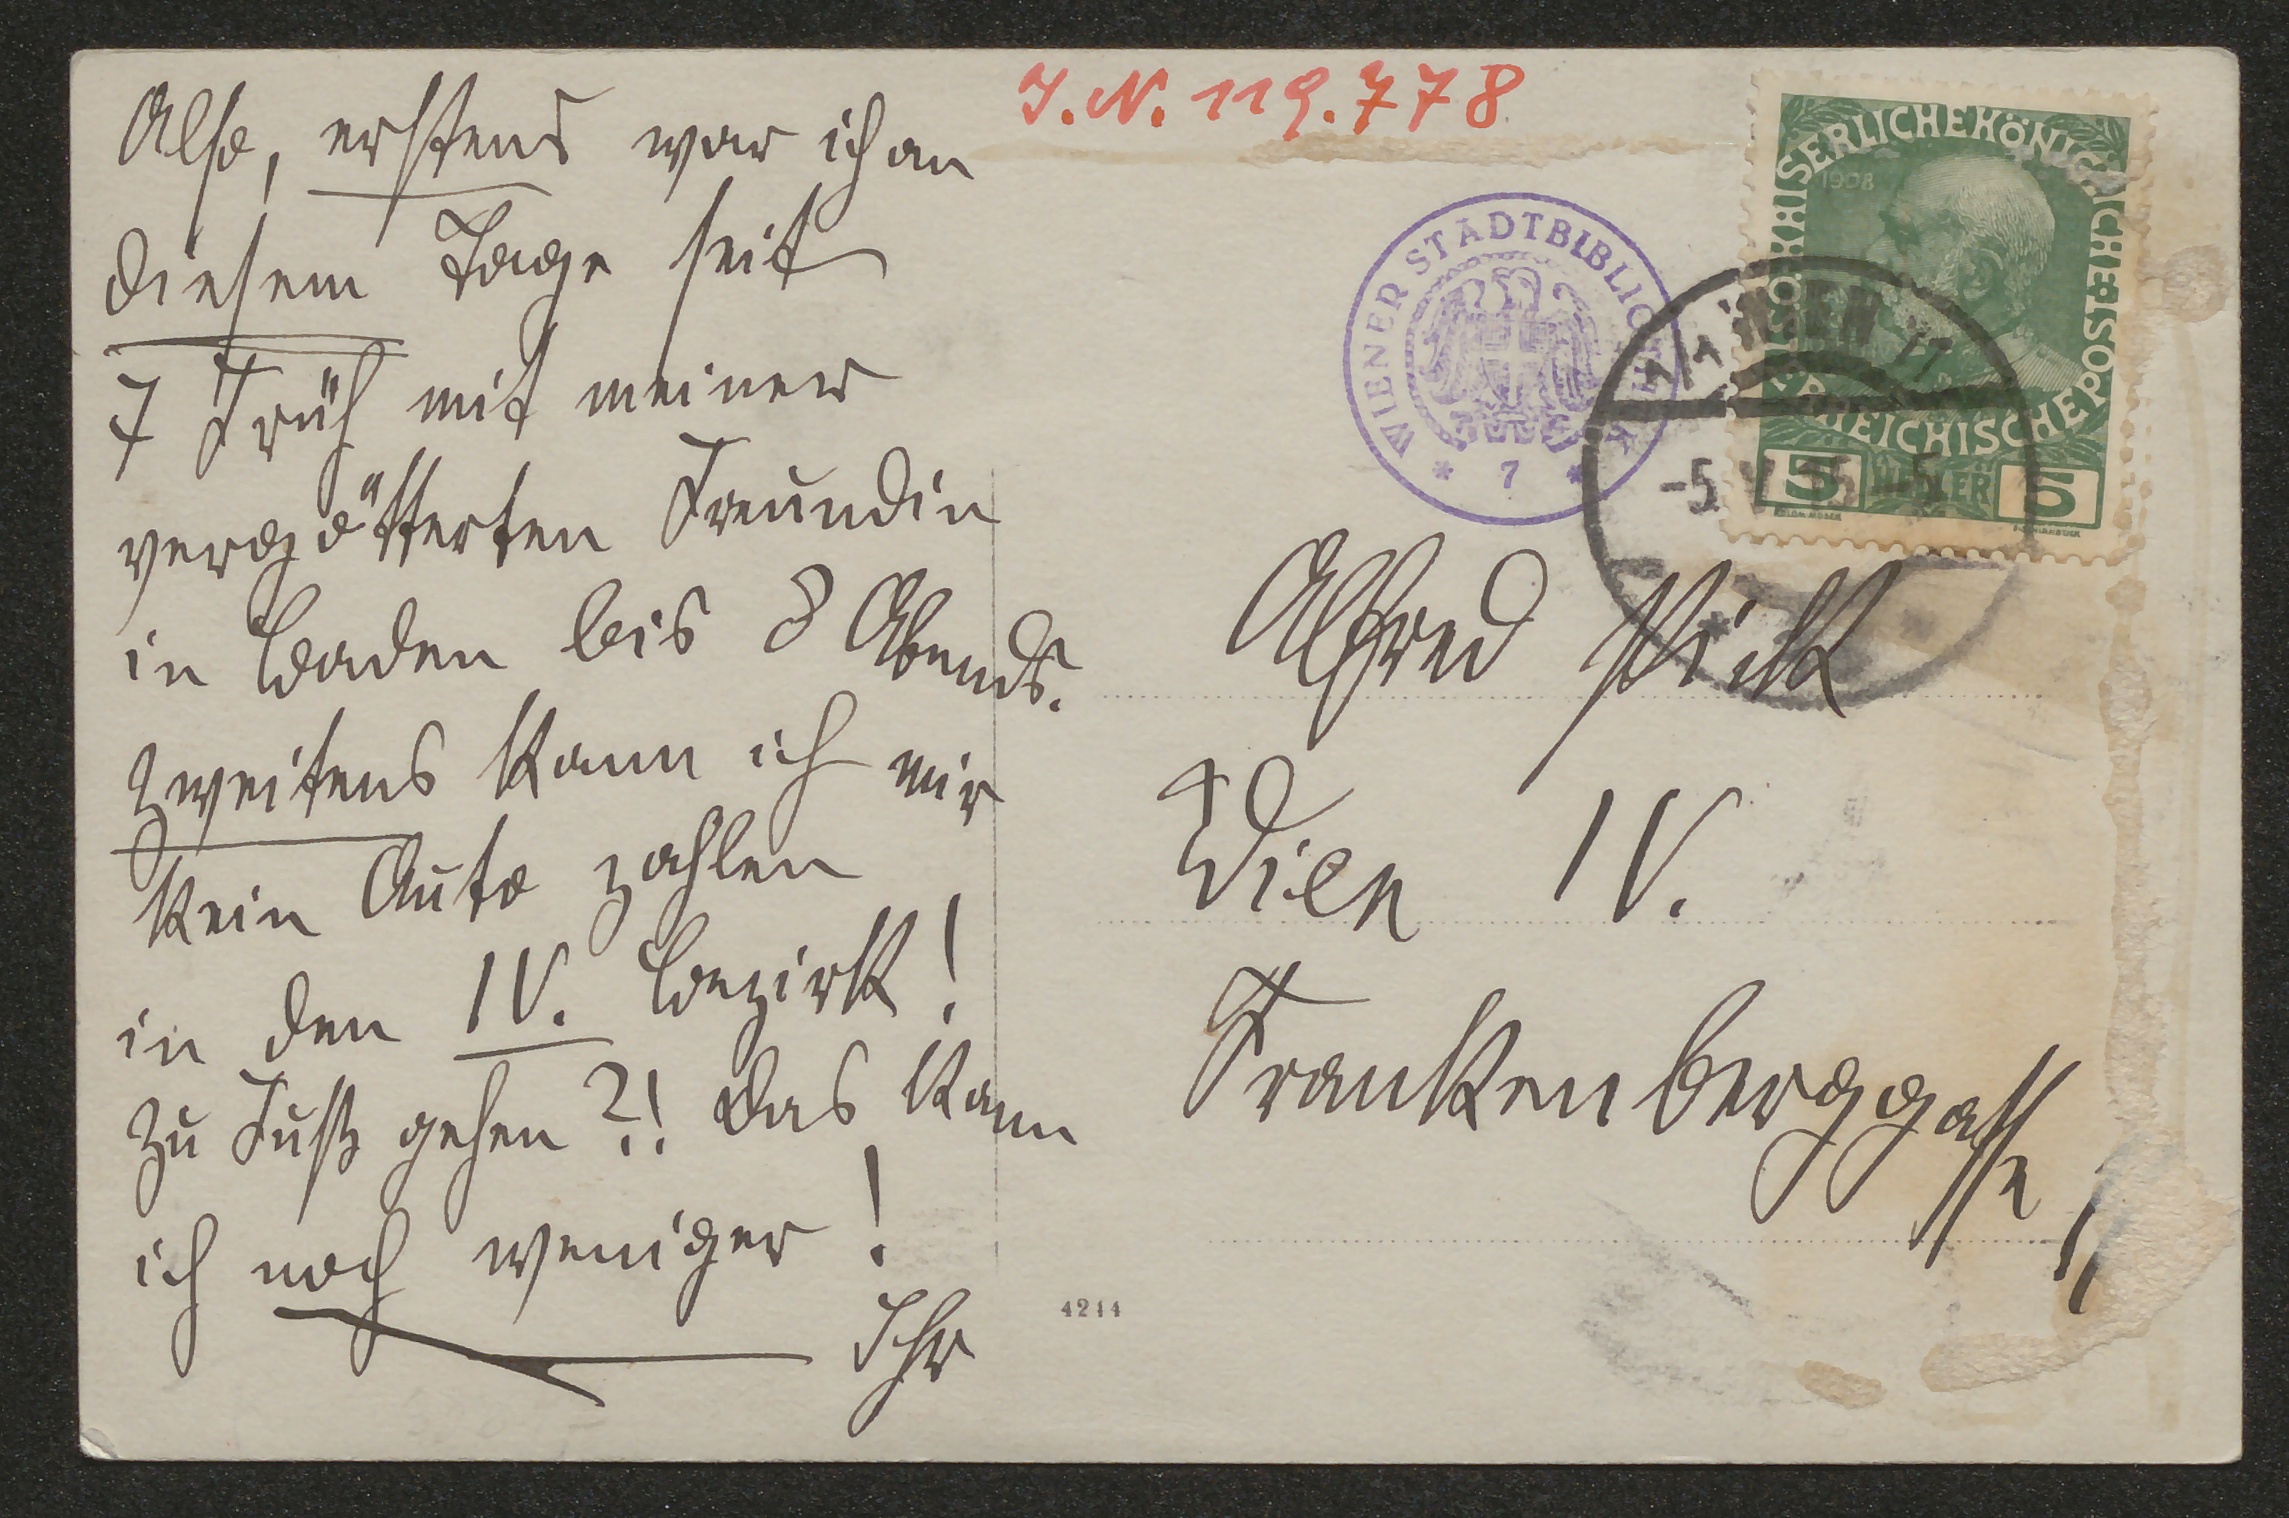 Also, erstens war ich an
diesem Tage seit
7 Früh mit meiner
vergötterten Freundin
in Baden bis 8 Abends.
Zweitens kann ich mir
kein Auto zahlen
in den IV. Bezirk!
Zu Fusz gehen?! Das kann
ich noch weniger!
Ihr
4214
J.N. 119.778
WIENER STADTBIBLIOTHEK
* 7 *
KAISERLICHE KÖNIGLICHE
ÖSTERREICHISCHE POST
1908
5 HELLER 5
WIEN
-5. V
Alfred Pick
Wien IV.
Frankenberggasse